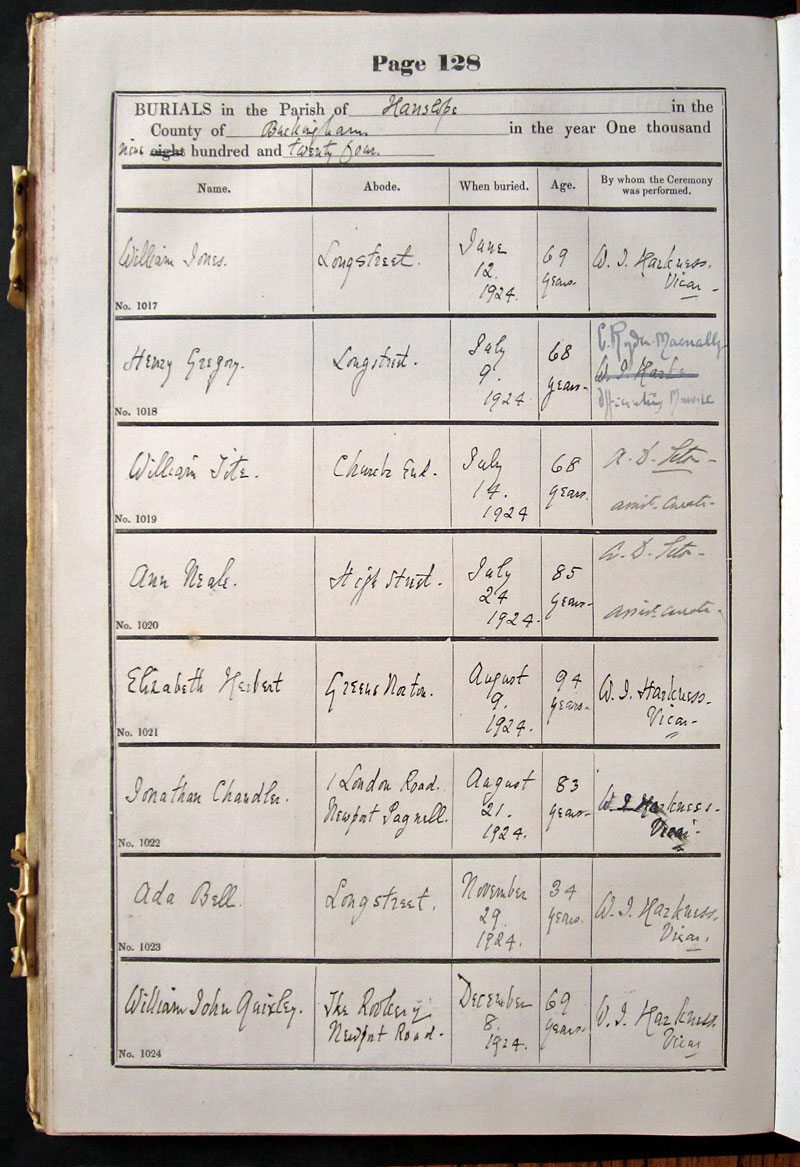 Page 128
BURIALS in the Parish of Hanslope in the
County of Buckingham. in the year One thousand
nine eight hundred and twenty four.
Name. Abode. When buried. Age. By whom the Ceremony was performed.
William Jones.
Longstreet.
June
12.
1924.
69
years.
W. J. Harkness.
Vicar
No. 1017
Henry Gregory.
Longstreet.
July
9.
1924.
68
years.
C. Ryder Macnally
W. J. Harkn
No. 1018
William Tite.
Church End.
July
14.
1924
68
years.
A. D.
assist. curate
No. 1019
Ann Neale.
High Street.
July
24
1924.
85
years.
A. D.
assist. curate
No. 1020
Elizabeth Herbert
Greens Norton.
August
9.
1924.
94
years.
W. J. Harkness.
Vicar
No. 1021
Jonathan Chandler.
1 London Road.
Newport Pagnell.
August
21.
1924.
83
years.
W. J. Harkness.
Vicar.
No. 1022
Ada Bell.
Longstreet.
November
29.
1924.
34
years.
W. J. Harkness.
Vicar.
No. 1023
William John Quixley.
The Rookery
Newport Road.
December
8.
1924.
69
years.
W. J. Harkness.
Vicar
No. 1024